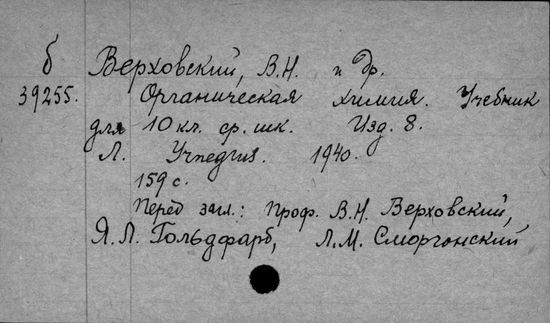 б Верховский, В.Н. и др.
39255. Органическая химия. Учебник
для 10 кл. ср. шк. Изд. 8.
Л. Учпедгиз. 1940.
159 с.
Перед загл.: проф. В.Н. Верховский,
Я.Л. Гольдфарб, Л.М. Сморгонский